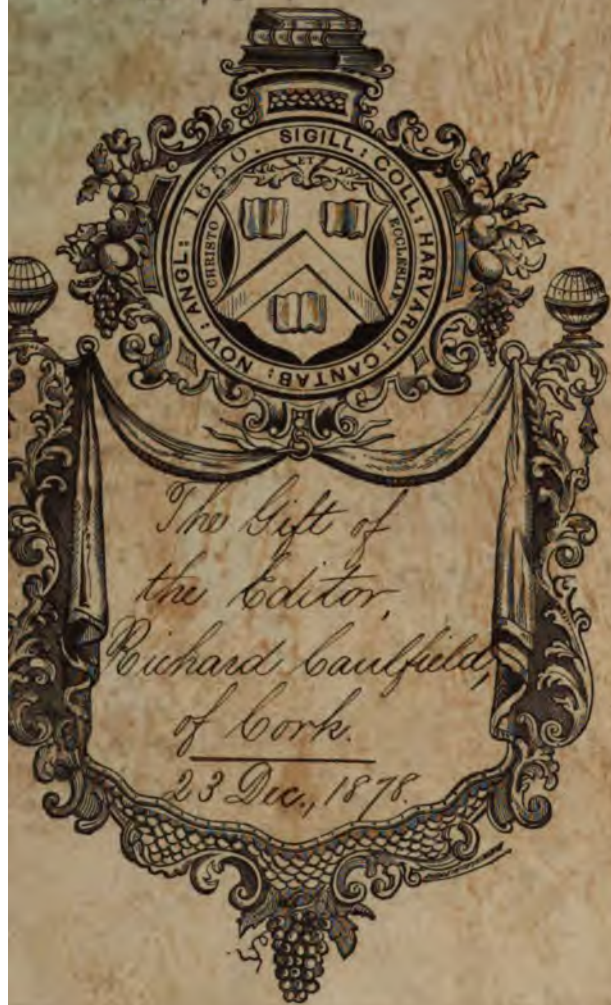 SIGILL: COLL: HARVARD: CANTAB: NOV: ANGL: 1650.
CHRISTO ET ECCLESIAE
The Gift of
the Editor,
Richard Caulfield,
of Cork.
23 Dec., 1878.